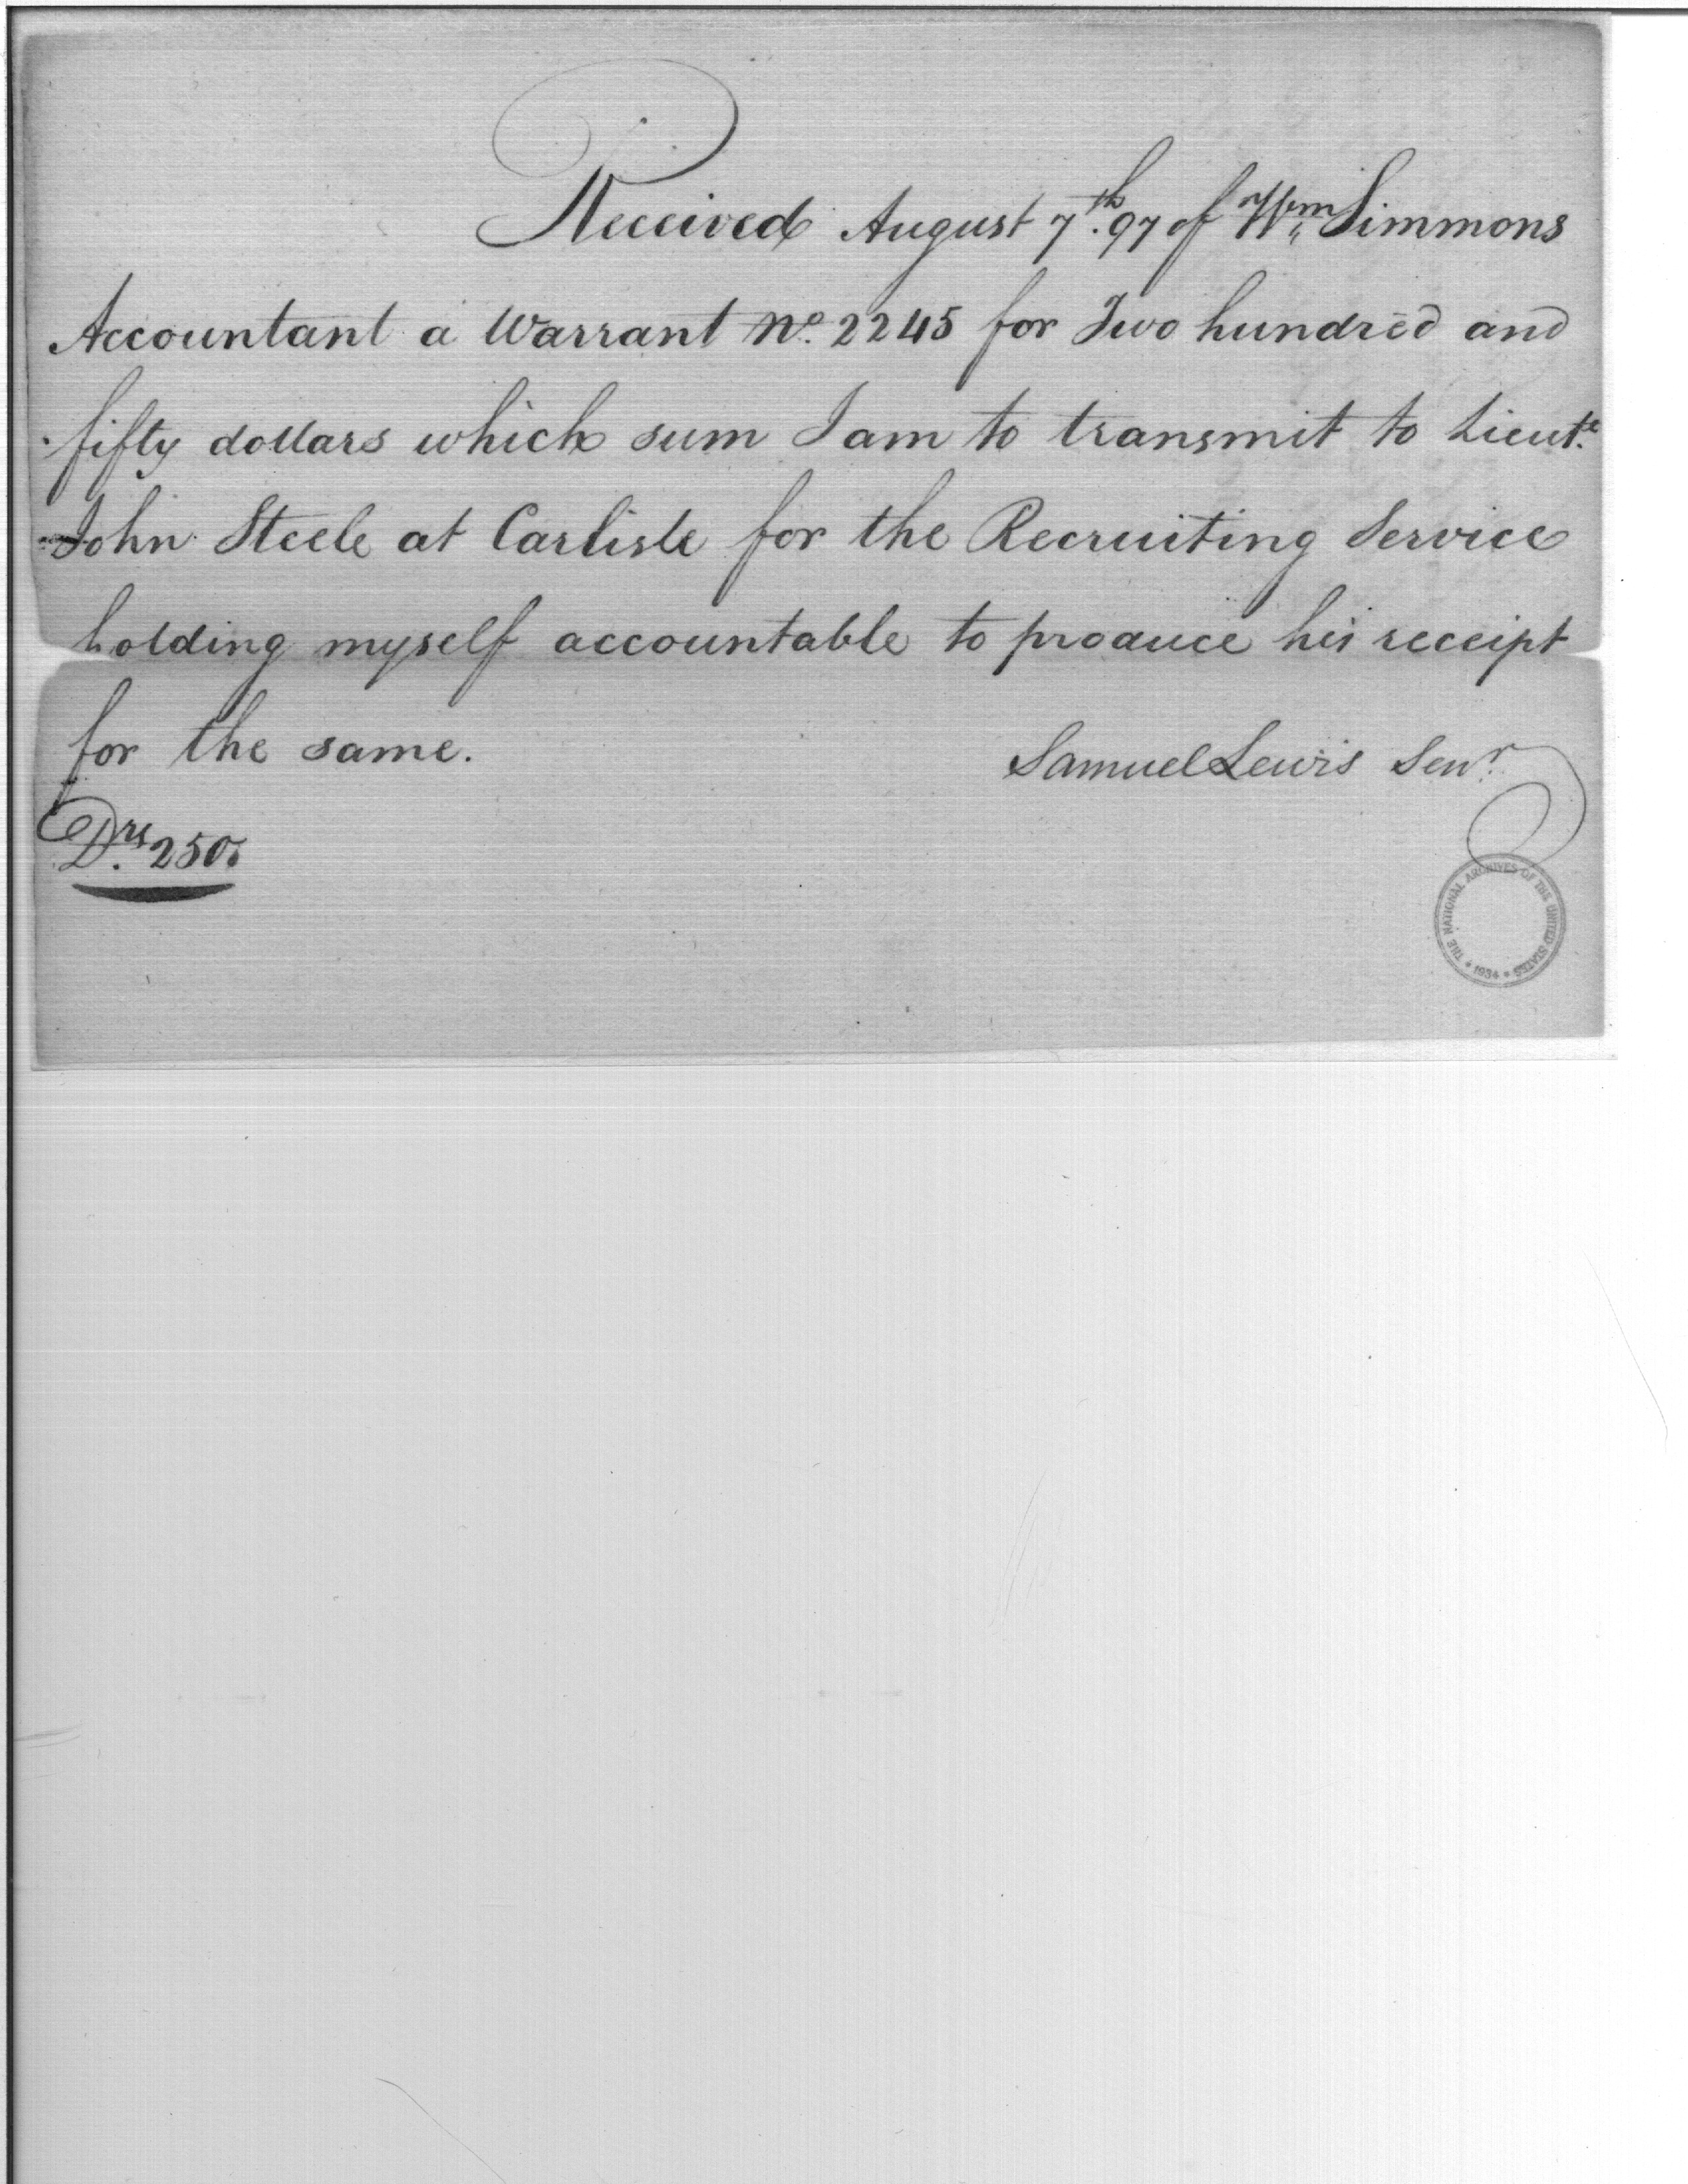 Received August 7th. 97 of Wm. Simmons
Accountant a Warrant No. 2245 for Two hundred and
fifty dollars which sum I am to transmit to Lieut.
John Steele at Carlisle for the Recruiting Service
holding myself accountable to produce his receipt
for the same.
Samuel Lewis Senr.
Drs. 250.
THE NATIONAL ARCHIVES OF THE UNITED STATES
* 1934 *